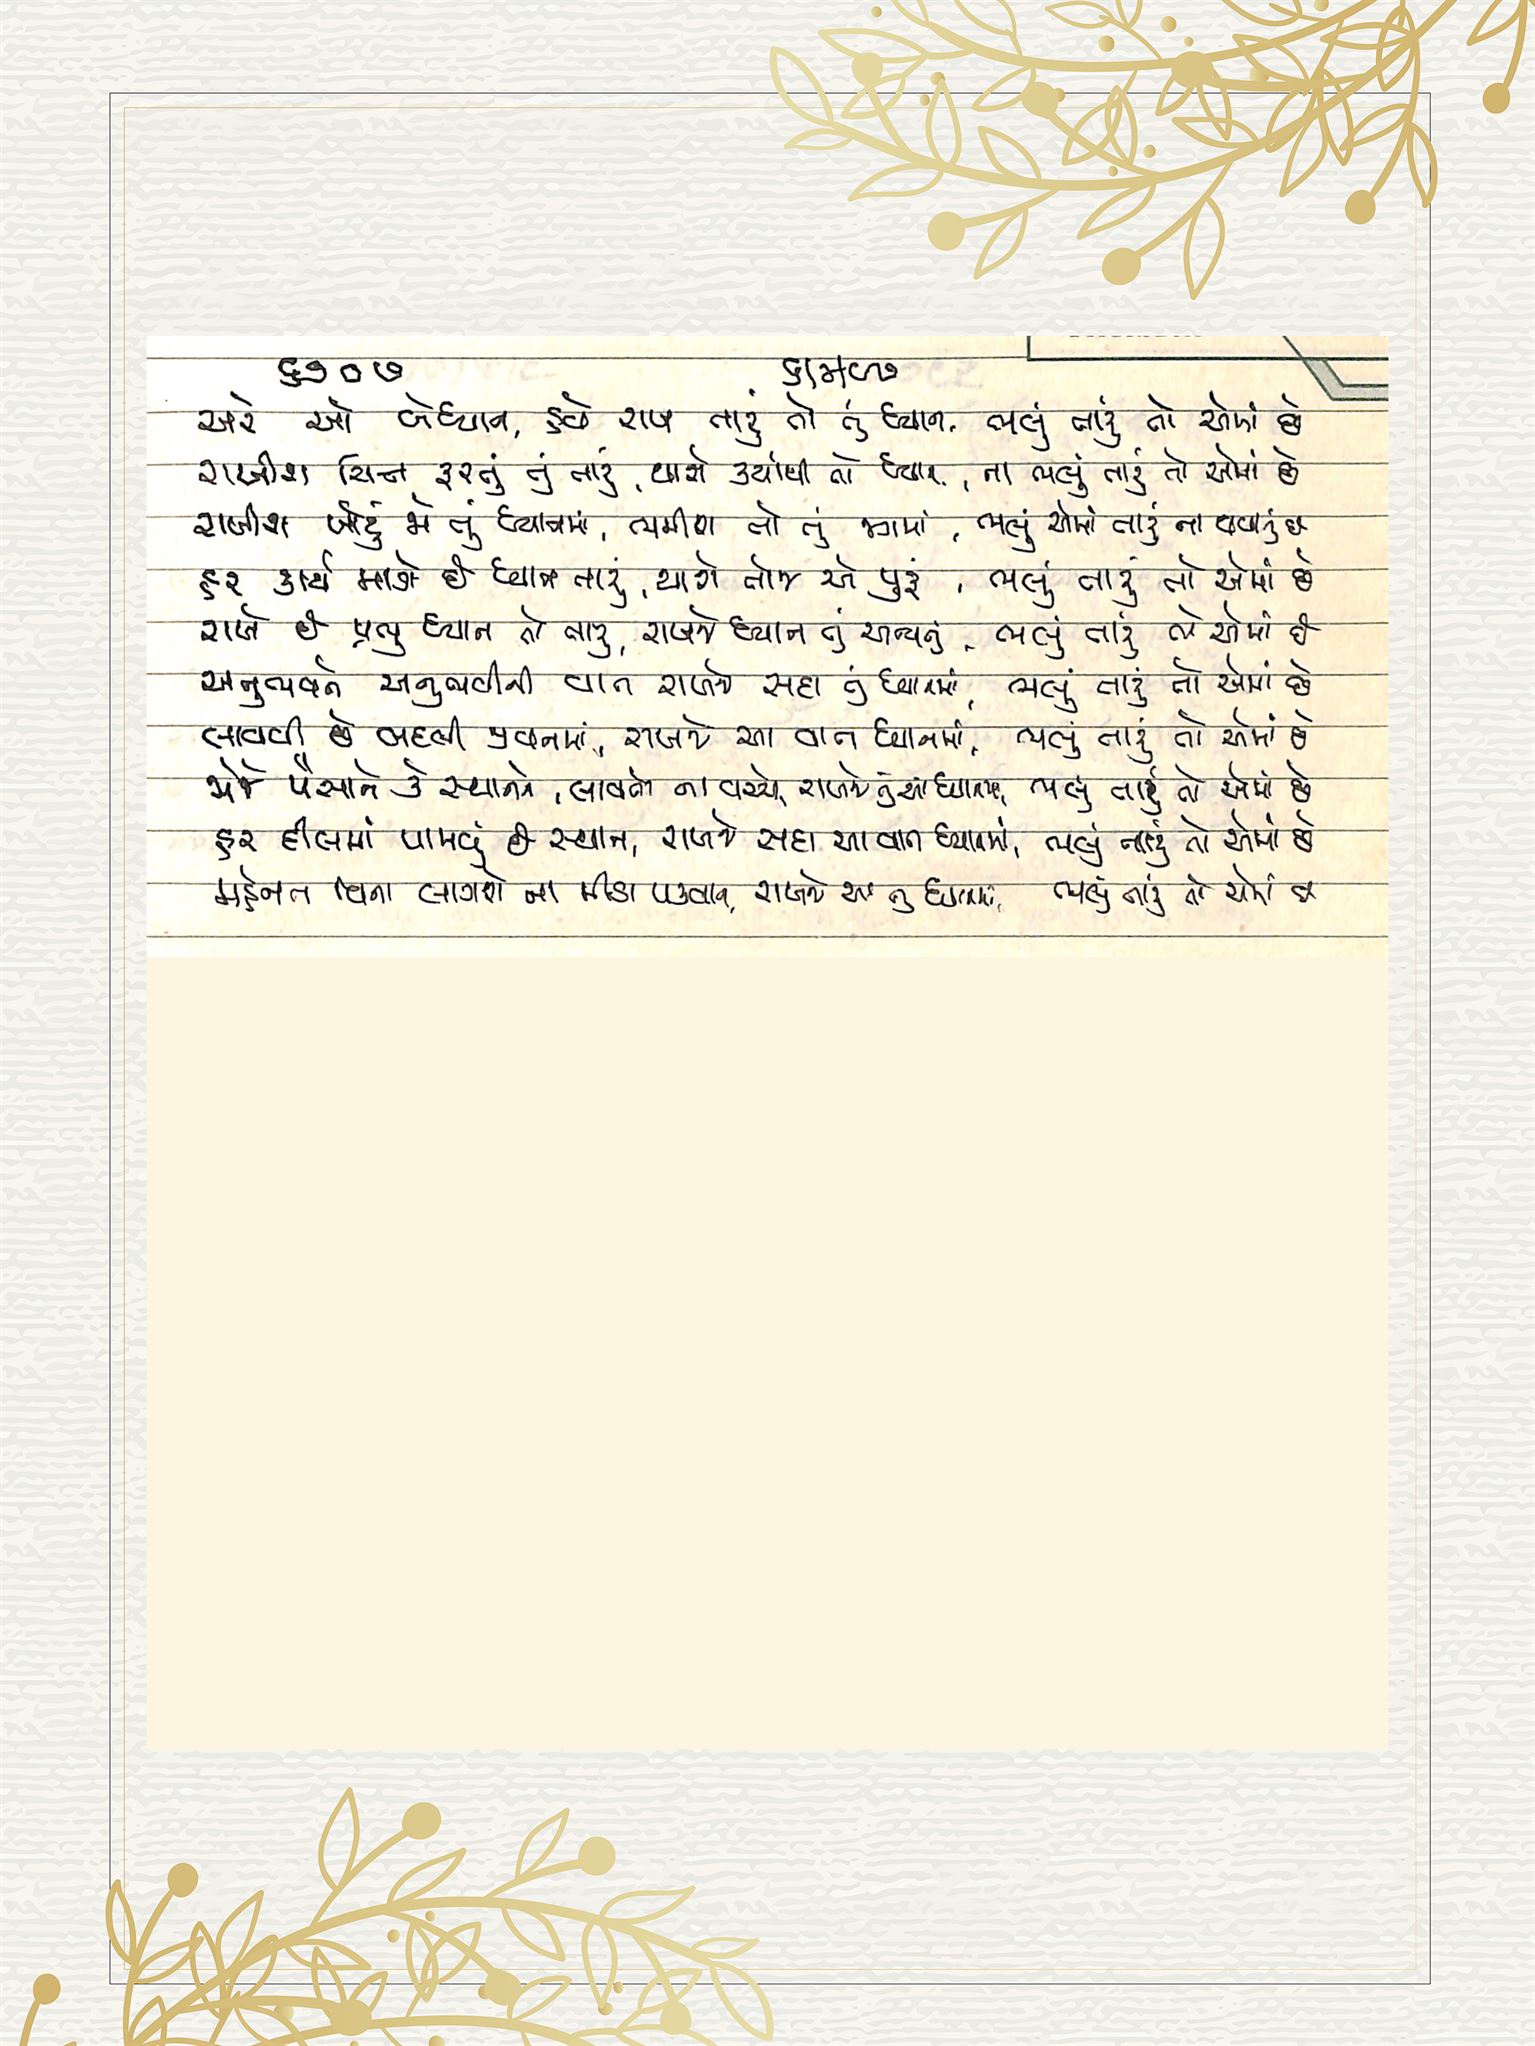 અરે ઓ બેધ્યાન, હવે રાખ તારું તો તું ધ્યાન. ભલું તારું તો એમાં છે
રાખીશ ચિત્ત ફરતું ને તું તારું, થાશે ક્યાંથી તો ધ્યાન, ના ભલું તારું તો એમાં છે
રાખીશ ખોટું જે તું ધ્યાનમાં, ભમીશ તો તું ભ્રમમાં, ભલું એમાં તારું ના થવાનું છે
હર કાર્ય માગે છે ધ્યાન તારું, થાશે તોજ એ પુરું, ભલું તારું તો એમાં છે
રાખે છે પ્રભુ ધ્યાન તો તારું, રાખજે ધ્યાન તું અન્યનું, ભલું તારું તો એમાં છે
અનુભવને અનુભવીની વાત રાખજે સદા તું ધ્યાનમાં, ભલું તારું તો એમાં છે
લાવવી છે બદલી જીવનમાં, રાખજે આ વાત ધ્યાનમાં, ભલું તારું તો એમાં છે
પૈસાને કે સ્થાનને, લાવતો ના વચ્ચે, રાખજે તું આ ધ્યાનમાં, ભલું તારું તો એમાં છે
હર દીલમાં પામવું છે સ્થાન, રાખજે સદા આ વાત ધ્યાનમાં, ભલું તારું તો એમાં છે
મહેનત વિના લાગશે ના મીઠા પકવાન, રાખજે આ તું ધ્યાનમાં, ભલું તારું તો એમાં છે